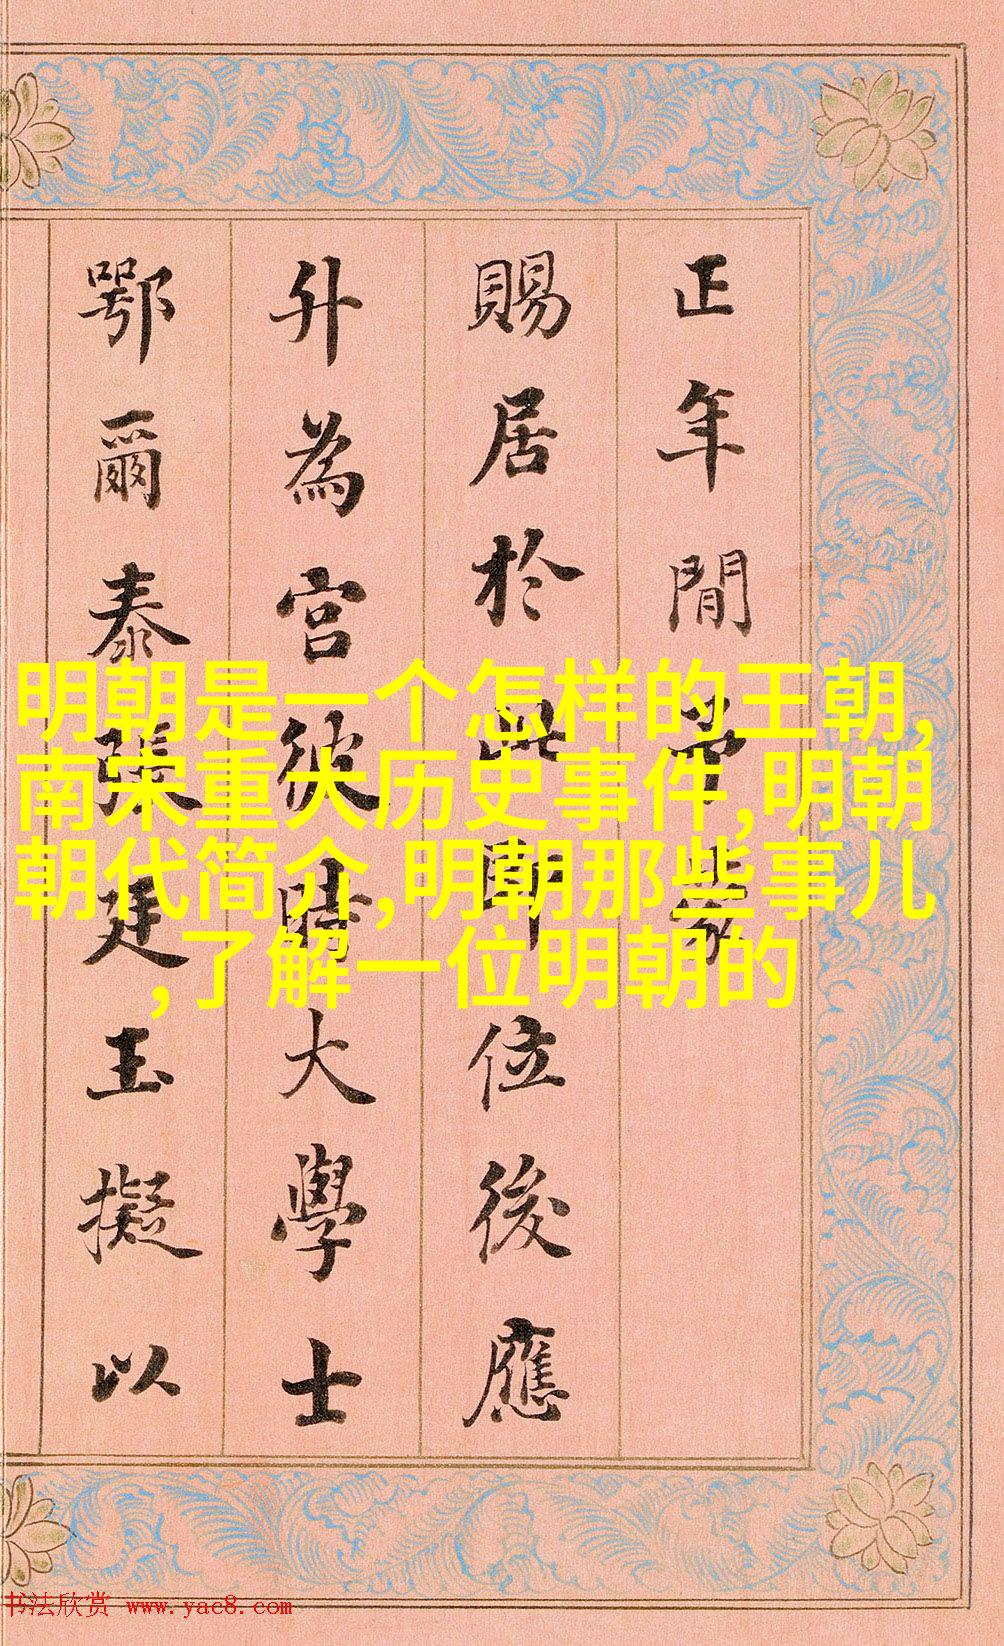 正年間常蒙
賜居於此即位後應
升為宮彼時大學士
鄂爾泰張廷玉擬以
明朝是一个怎样的王朝,
南宋重大历史事件,明朝
朝代简介,明朝那些事儿
,了解一位明朝的
书法欣赏 www.yac8.com